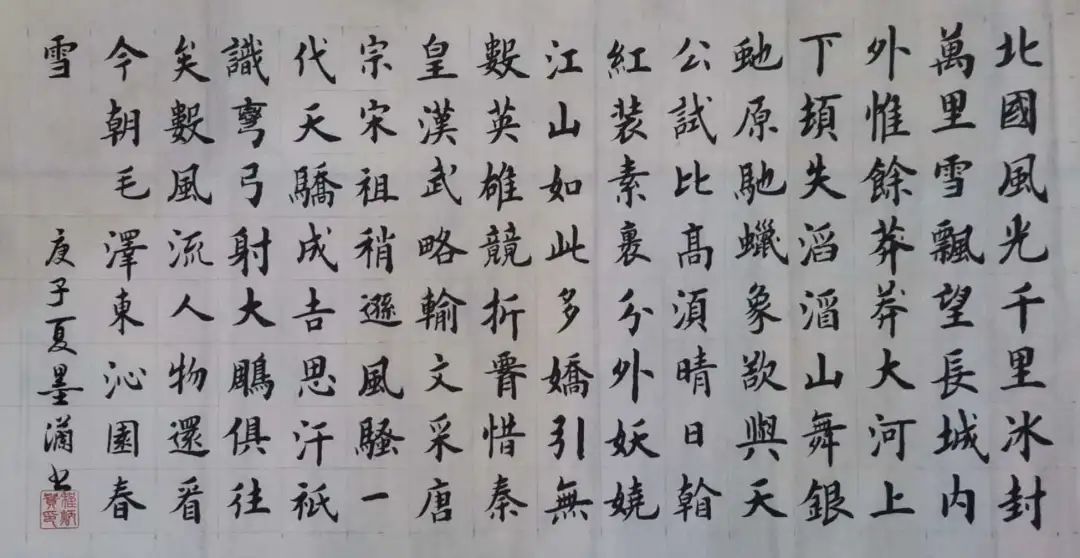 北國風光千里冰封
萬里雪飄望長城内
外惟餘莽莽大河上
下頓失滔滔山舞銀
虵原馳蠟象欲與天
公試比高湏晴日看
紅裝素裹分外妖嬈
江山如此多嬌引無
數英雄競折腰惜秦
皇漢武略輸文采唐
宗宋祖稍遜風騷一
代天驕成吉思汗祇
識彎弓射大鵰俱往
矣數風流人物還看
今朝毛澤東沁園春
雪
庚子夏墨瀟书